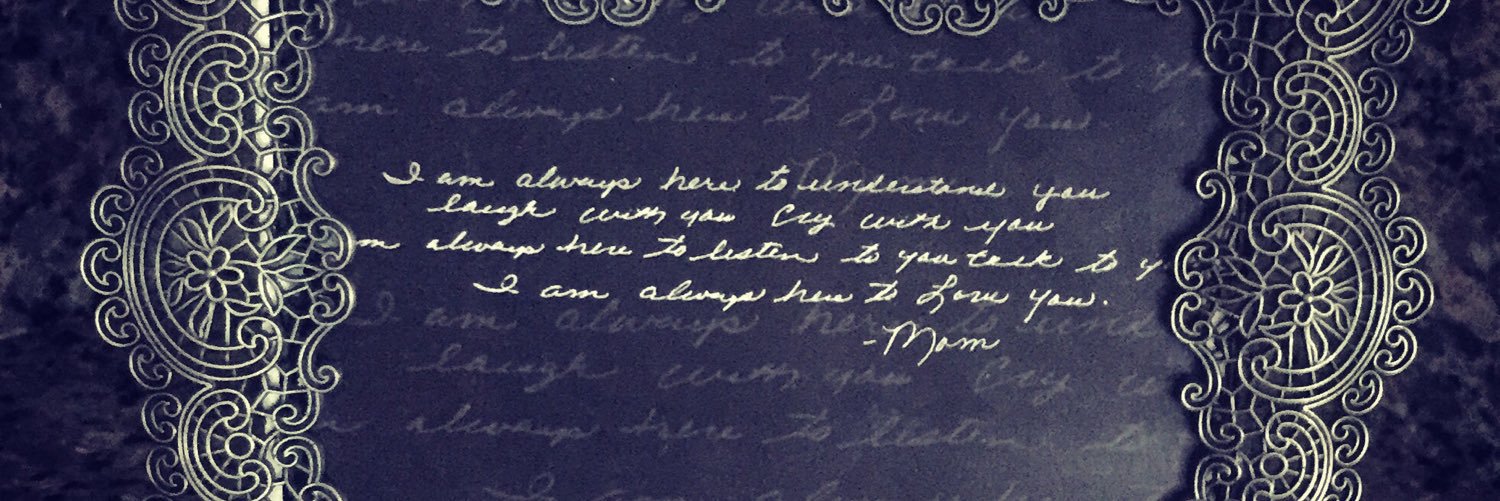 here to listen to you talk to yo
am always here to Love you
I am always here to understand you
laugh with you Cry with you
m always here to listen to you talk to y
I am always here to Love you.
-Mom
I am always here to und
laugh with you Cry w
always here to listen t
I am always here to